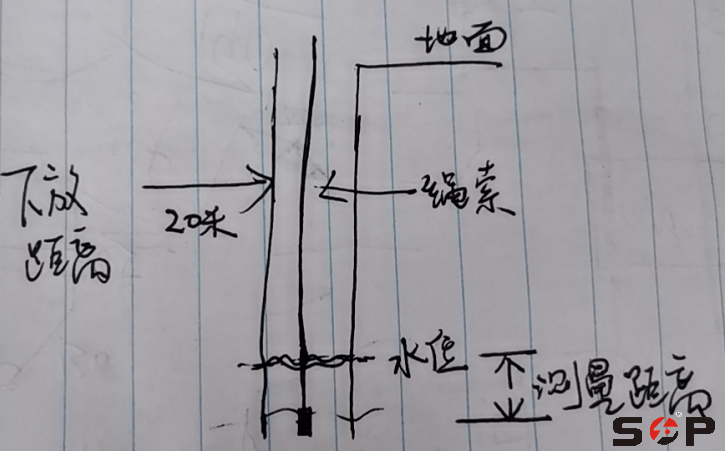 地面
下放
距离
20米
绳索
水位
测量距离
SOP